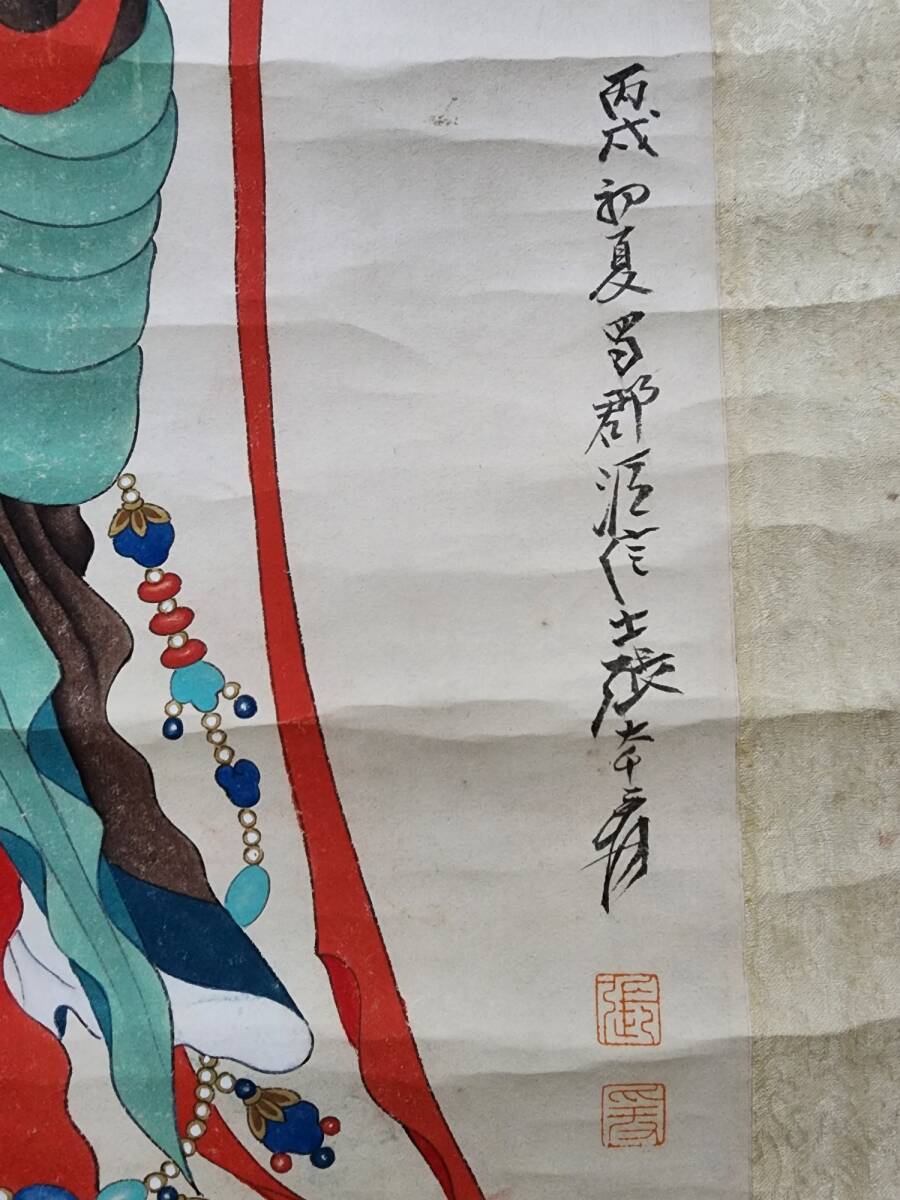 丙戌初夏蜀郡清信士張大千爰
張
爰